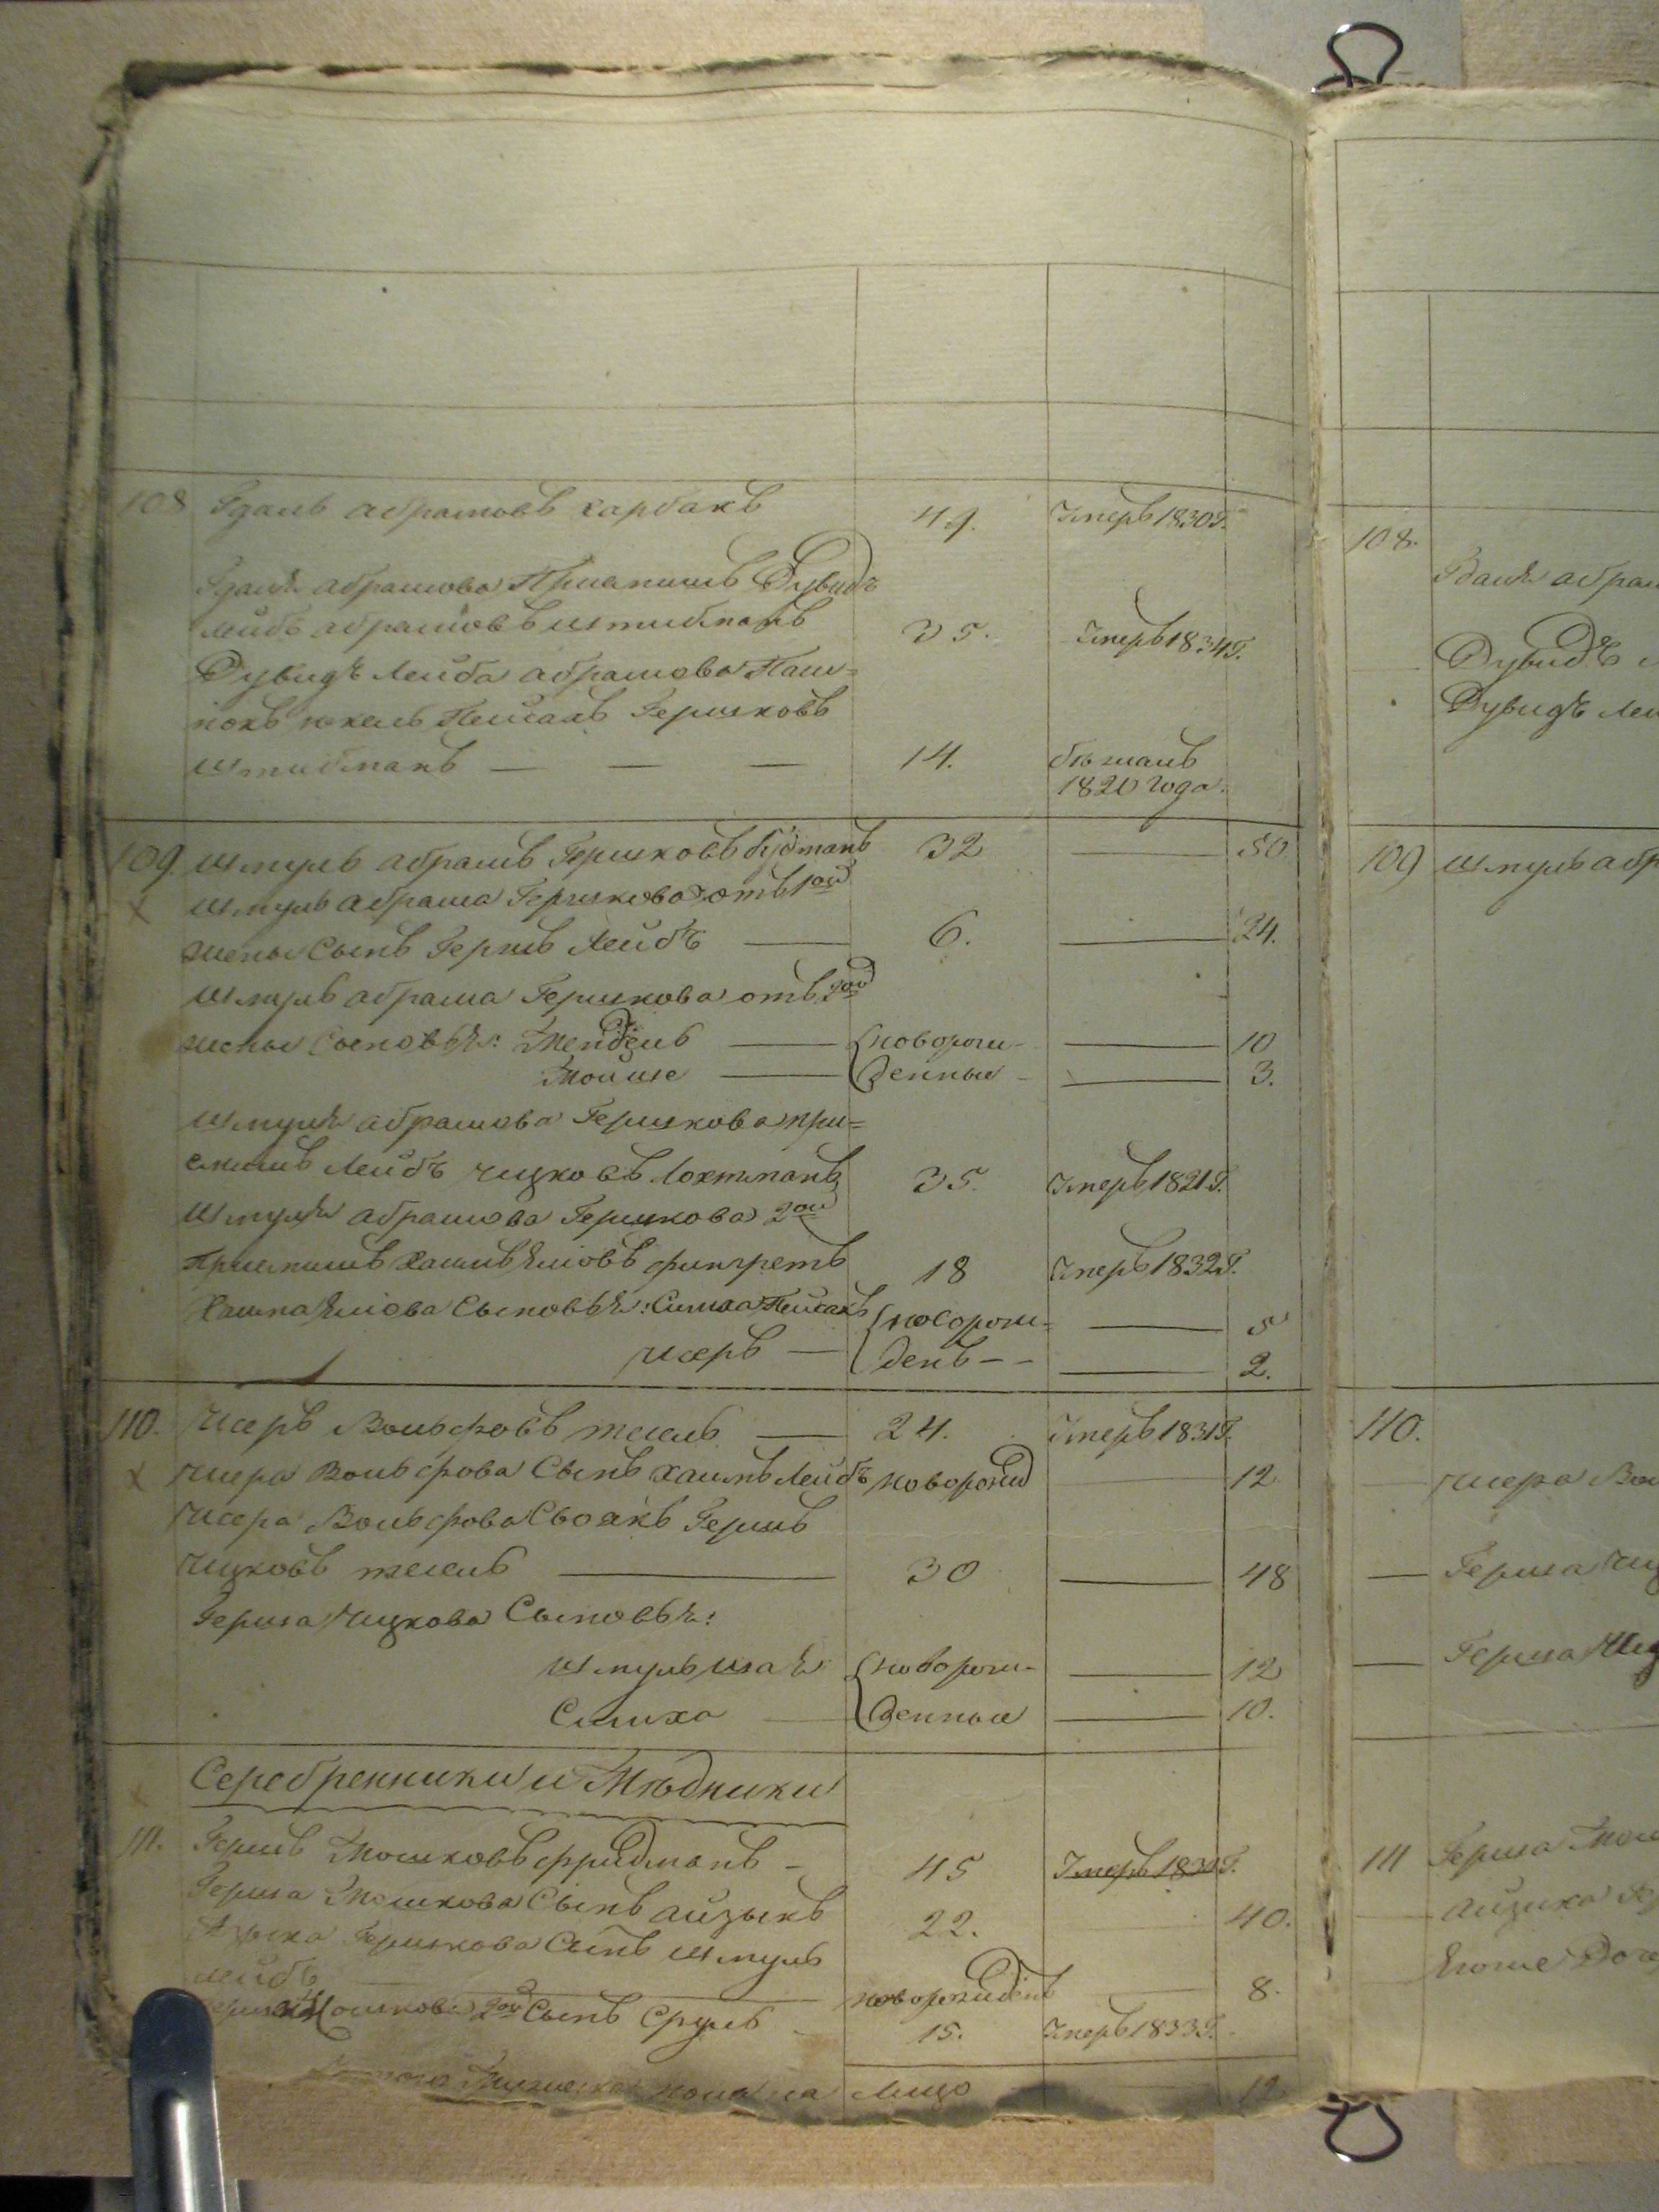 108 Гдаль Абрамовъ Карбакъ 49. Умеръ 1830г.
Гдаля Абрамова Приемышъ Дувидъ
Лейбъ Абрамовъ Штибманъ 35. Умеръ 1834г.
Дувидъ Лейба Абрамова
Пейсахъ Гершковъ
Штибманъ — — — 14. бѣжалъ
1820 года.
109. Шмуль Абрамъ Гершковъ 32 — 50
Шмуль Абрама Гершкова отъ 1ой
жены Сынъ Гершъ Лейбъ — 6. — 24.
Шмуль Абрама Гершкова отъ 2ой
жены Сыновья: Мендель — новорож- — 10
Мойше — денные — 3.
Шмуля Абрамова Гершкова при=
емышъ Лейбъ Ицковъ Лохтманъ 35. Умеръ 1821г.
Шмуля Абрамова Гершкова 2ой
Приемышъ Хаимъ 18 Умеръ 1832г.
Хаима Сыновья: Симха Пейсахъ новорож= — 5
Исеръ — денъ — — 2.
110. Исеръ Вольфовъ — 24. Умеръ 1831г.
Исера Вольфова Сынъ Хаимъ Лейбъ новорожд — 12
Исера Вольфова Своякъ Гершъ
Ицковъ — 30 — 48
Герша Ицкова Сыновья:
Шмуль новорож- — 12
Симха — денные — 10.
Серебренники и Мѣдники
111. Гершъ Мошковъ Фридманъ — 45 Умеръ 1831г.
Герша Мошкова Сынъ Айзыкъ 22. 40.
Гершкова Сынъ Шмуль
Лейбъ — новорожденъ — 8.
Мошкова 2ой Сынъ Сруль 15. Умеръ 1833г.
лицо
108.
Гдаля Абрам
Дувидъ
Дувидъ Лей
109 Шмуль Абр
110.
Исера Во
Герша Иц
Герша Иц
111 Герша Мош
Айзика